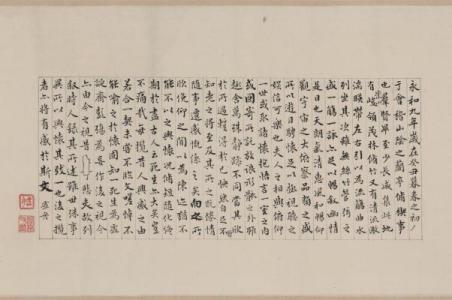 永和九年歲在癸丑暮春之初
于會稽山陰之蘭亭脩禊事
也群賢畢至少長咸集此地
有峻領茂林脩竹又有清流激
湍暎帶左右引以為流觴曲水
列坐其次雖無絲竹管弦之
盛一觴一詠亦足以暢敘幽情
是日也天朗氣清惠風和暢仰
觀宇宙之大俯察品類之盛
所以遊目騁懷足以極視聽之
娛信可樂也夫人之相與俯仰
一世或取諸懷抱悟言一室之內
或因寄所託放浪形骸之外雖
趣舍萬殊靜躁不同當其欣
於所遇暫得於己怏然自足不
知老之將至及其所之既惓情
隨事遷感慨係之矣向之所
欣俛仰之閒以為陳迹猶不
能不以之興懷況脩短隨化終
期於盡古人云死生亦大矣豈
不痛哉每攬昔人興感之由
若合一契未嘗不臨文嗟悼不
能喻之於懷固知一死生為虛
誕齊彭殤為妄作後之視今
亦由今之視昔悲夫故列
敘時人錄其所述雖世殊事
異所以興懷其致一也後之攬
者亦將有感於斯文